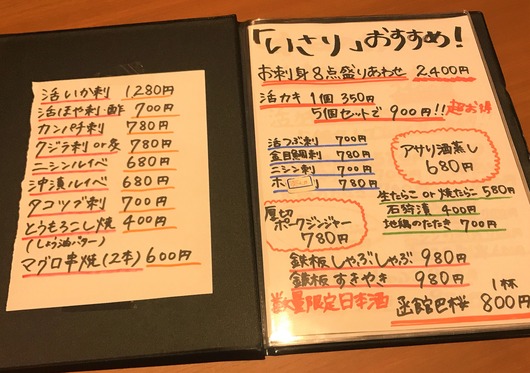 活いか刺 1,280円
活ほや刺・酢 700円
カンパチ刺 780円
クジラ刺 or 780円
ニシンルイベ 680円
沖漬ルイベ 680円
タコツブ刺 700円
とうもろこし焼 400円
(しょう油バター)
マグロ串焼(2本) 600円
「いさり」おすすめ!
お刺身8点盛りあわせ 2,400円
活カキ 1個 350円
5個セットで 900円!! 超お得
活つぶ刺 700円
金目鯛刺 780円
ニシン刺 700円
ホ 780円
アサリ酒蒸し
680円
生たらこ or 焼たらこ 580円
石狩漬 400円
地鶏のたたき 700円
厚切
ポークジンジャー
780円
鉄板しゃぶしゃぶ 980円
鉄板すきやき 980円
数量限定日本酒 函館巴桜 1杯 800円